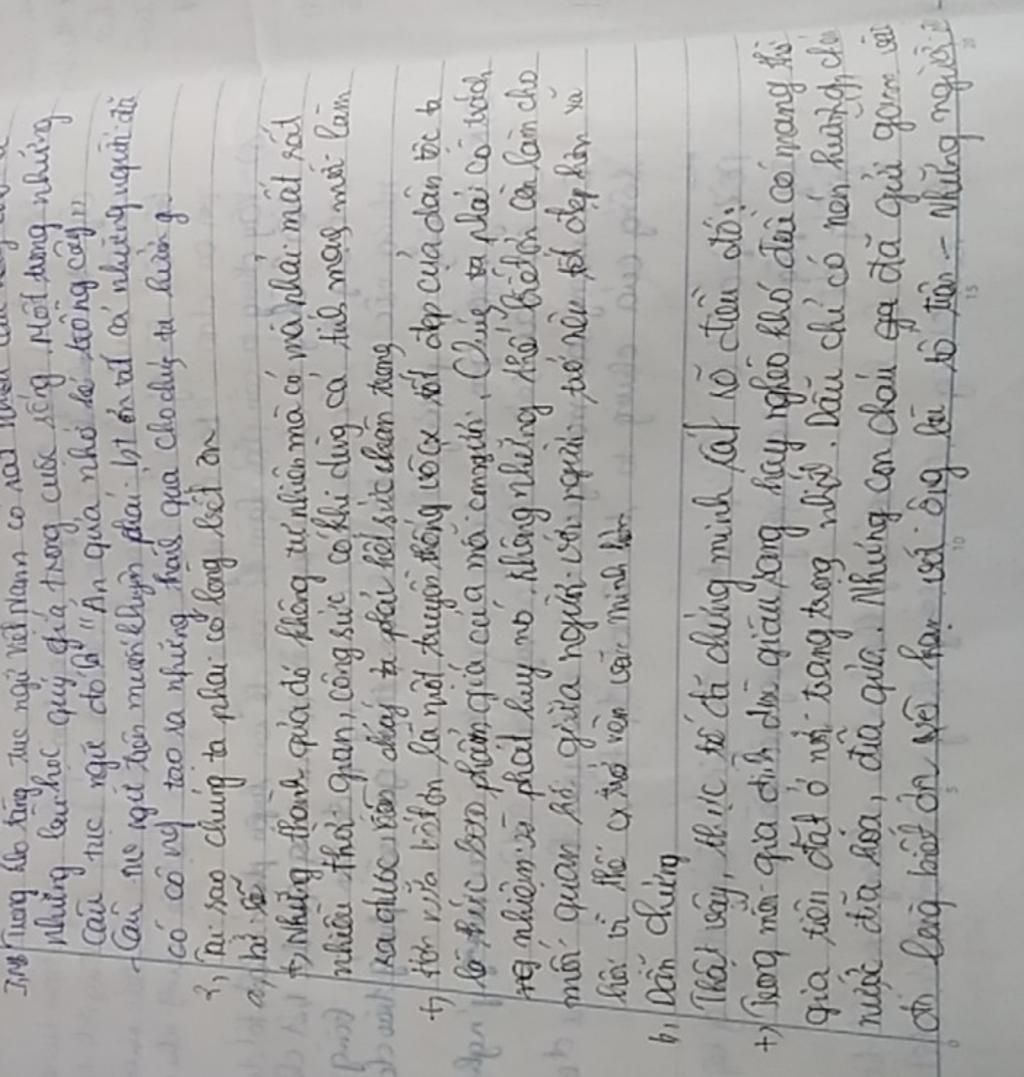 Trong kho tàng tục ngữ Việt Nam có rất nhiều câu
những bài học quý giá trong cuộc sống. Một trong những
câu tục ngữ đó là "Ăn quả nhớ kẻ trồng cây"
- Câu tục ngữ trên muốn khuyên phải biết ơn tất cả những người đã
có công tạo ra những thành quả cho chúng ta hưởng
2, Tại sao chúng ta phải có lòng biết ơn
a, Lí lẽ
+) Những thành quả đó không tự nhiên mà có mà phải mất rất
nhiều thời gian, công sức có khi dùng cả tính mạng mới làm
ra được vì vậy chúng ta phải hết sức trân trọng
+) Hơn nữa biết ơn là một truyền thống vô cx tốt đẹp của dân tộc ta
là thước đo phẩm giá của mỗi con người. Chúng ta phải có trách
nhiệm và phát huy nó. Không những thế biết ơn còn làm cho
mối quan hệ giữa người với người trở nên tốt đẹp hơn xã
hội vì thế cx trở nên văn minh hơn
b, Dẫn chứng
Thật vậy, thực tế đã chứng minh rất rõ điều đó:
+) Trong mỗi gia đình dù giàu sang hay nghèo khó đều có trang thờ
gia tiên đặt ở nơi trang trọng nhất. Dẫu chỉ có nén hương, chén
nước đĩa hoa, đĩa quả. Nhưng con cháu đã gửi gắm vào
đó lòng biết ơn vô hạn với ông bà tổ tiên - Những người đã
0 5 10 15 20